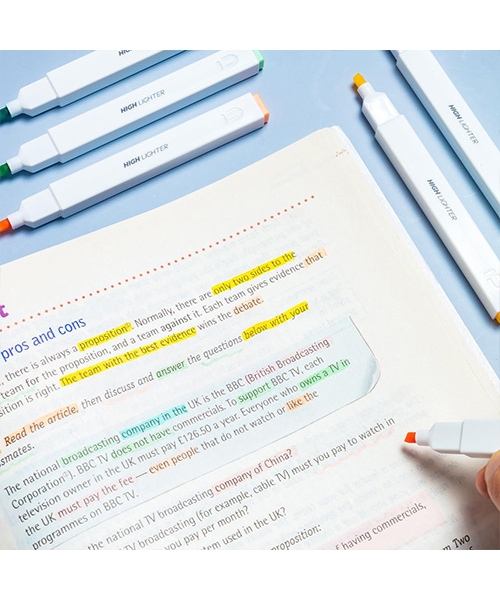 HIGH LIGHTER
HIGH LIGHTER
HIGH LIGHTER
HIGH LIGHTER
HIGH LIGHTER
t
pros and cons
, there is always a proposition. Normally, there are only two sides to the
team for the proposition, and a team against it. Each team gives evidence that
sition is right. The team with the best evidence wins the debate.
Read the article, then discuss and answer the questions below with your
smates.
The national broadcasting company in the UK is the BBC (British Broadcasting
Corporation). BBC TV does not have commercials. To support BBC TV, each
television owner in the UK must pay £126.50 a year. Everyone who owns a TV in
the UK must pay the fee — even people that do not watch or like the
programmes on BBC TV.
the national TV broadcasting company of China?
TV broadcasting (for example, cable TV) must you pay to watch in
you pay per month?
tem used in the UK?
proposition:
f having commercials,
em Two